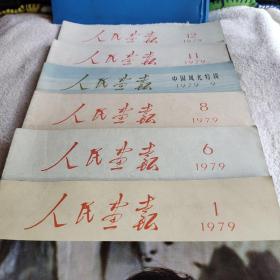 人民画报 12 1979
人民画报 11 1979
人民画报 中国风光特辑 1979·9
人民画报 8 1979
人民画报 6 1979
人民画报 1 1979